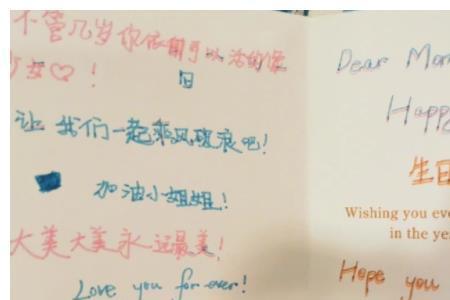 不管几岁你依旧可以活的像
少女♡!
让我们一起乘风破浪吧!
加油小姐姐!
大美大美永远最美!
Love you for ever!
Dear Mom
Happy
生日
Wishing you eve
in the ye
Hope you